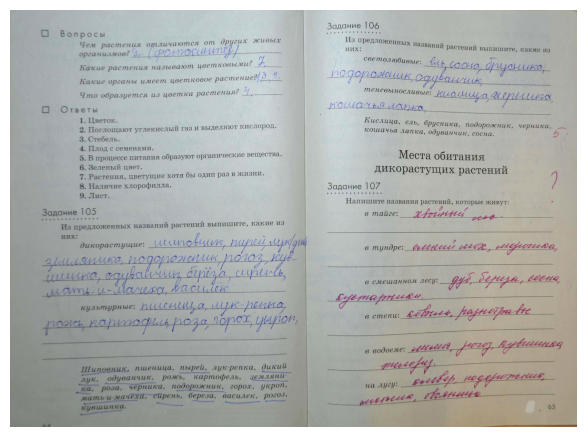 Вопросы
Чем растения отличаются от других живых
организмов? 2. (фотосинтез)
Какие растения называют цветковыми? 7.
Какие органы имеет цветковое растение?
Что образуется из цветка растения? 4.
Ответы
1. Цветок.
2. Поглощают углекислый газ и выделяют кислород.
3. Стебель.
4. Плод с семенами.
5. В процессе питания образуют органические вещества.
6. Зеленый цвет.
7. Растения, цветущие хотя бы один раз в жизни.
8. Наличие хлорофилла.
9. Лист.
Задание 105
Из предложенных названий растений выпишите, какие из
них:
дикорастущие: шиповник, пырей, лук
земляника, подорожник, рогоз, кув-
шинка, одуванчик, берёза, сирень,
мать-и-мачеха, василек
культурные: пшеница, лук-репка,
рожь, картофель, роза, горох, укроп,
Шиповник, пшеница, пырей, лук-репка, дикий
лук, одуванчик, рожь, картофель, земляни-
ка, роза, черника, подорожник, горох, укроп,
мать-и-мачеха, сирень, береза, василек, рогоз,
кувшинка.
Задание 106
Из предложенных названий растений выпишите, какие из
них:
светолюбивые: ель, сосна, брусника,
подорожник, одуванчик
теневыносливые: кислица, черника,
кошачья лапка.
Кислица, ель, брусника, подорожник, черника,
кошачья лапка, одуванчик, сосна.
5
Места обитания
дикорастущих растений
Задание 107
Напишите названия растений, которые живут:
в тайге: хвойный
в тундре: мох, морошка,
в смешанном лесу: дуб, береза, сосна
кустарники
в степи: ковыль, разнотравье
в водоеме: рогоз, кувшинка
телорез
на лугу: клевер, подорожник,
овсяница
65